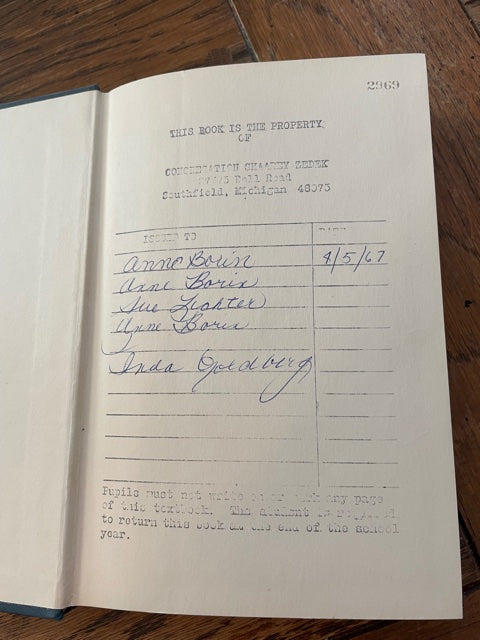 2969
THIS BOOK IS THE PROPERTY
OF
CONGREGATION SHAAREY ZEDEK
27375 Bell Road
Southfield, Michigan 48075
ISSUED TO DATE
Anne Borin 4/5/67
Anne Borin
Sue Lichter
Anne Borin
Linda Goldberg
Pupils must not write on or mark any page
of this textbook. The student is required
to return this book at the end of the school
year.